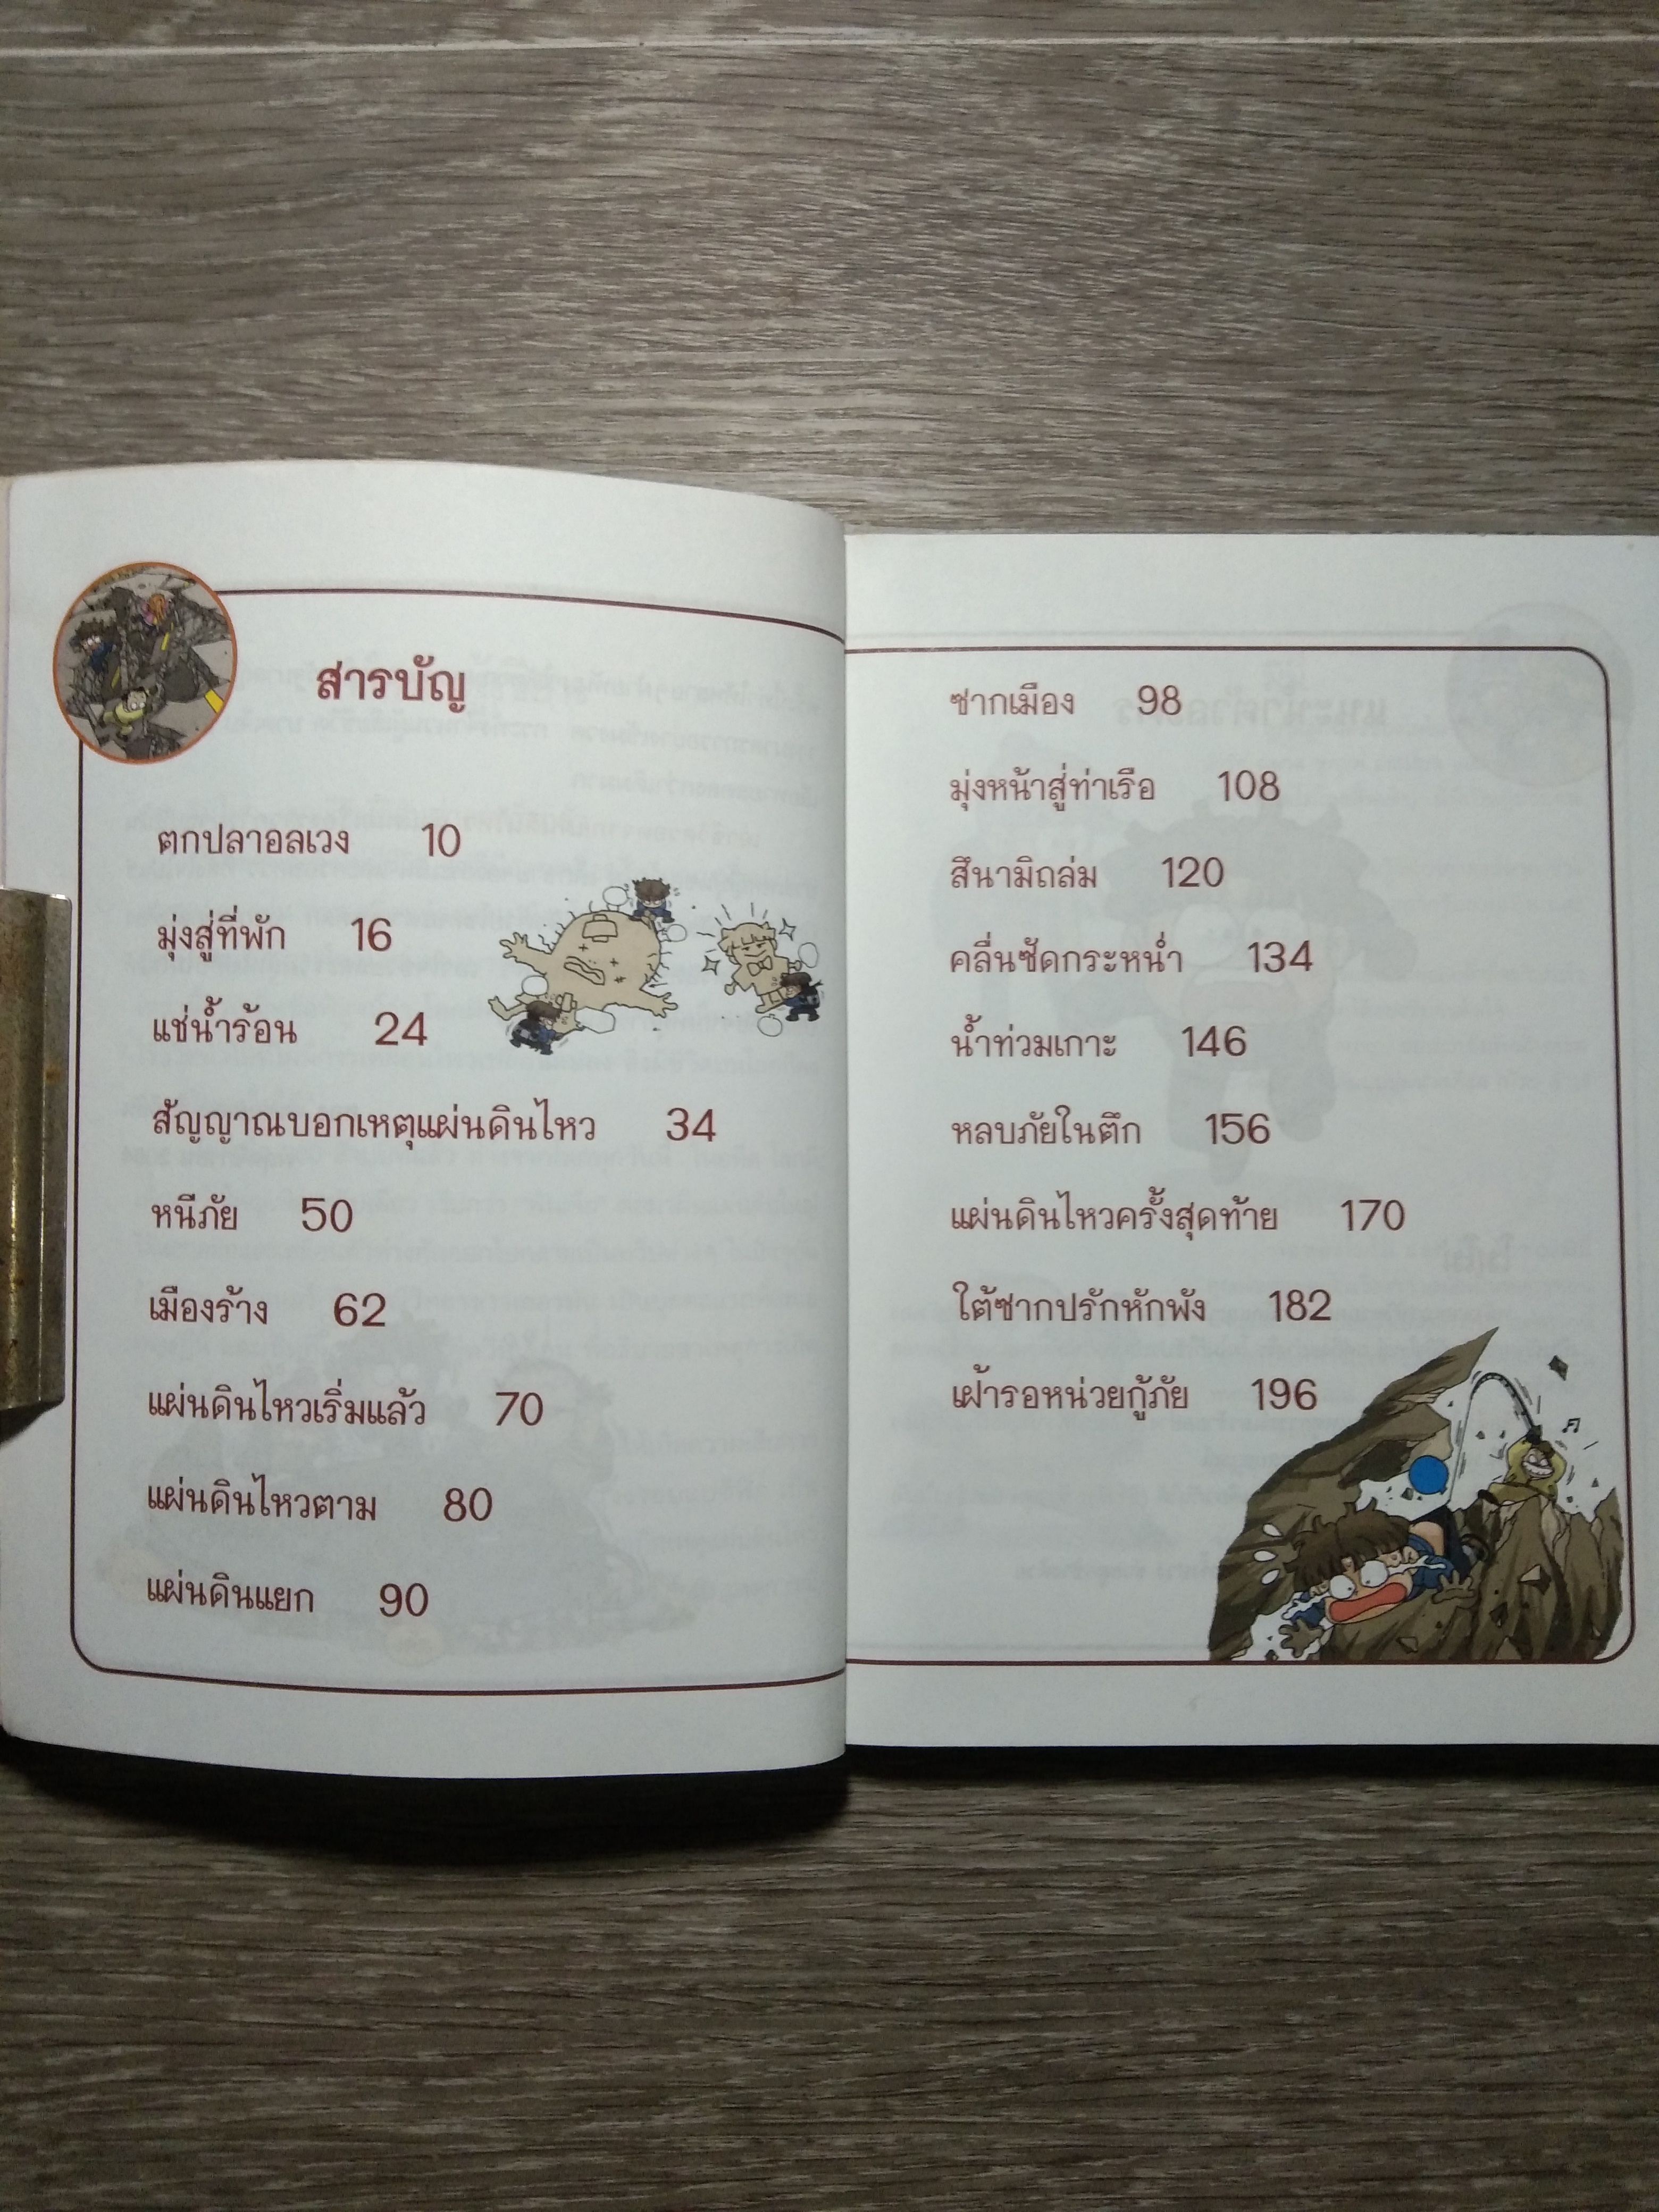 สารบัญ
ตกปลาอลเวง 10
มุ่งสู่ที่พัก 16
แช่น้ำร้อน 24
สัญญาณบอกเหตุแผ่นดินไหว 34
หนีภัย 50
เมืองร้าง 62
แผ่นดินไหวเริ่มแล้ว 70
แผ่นดินไหวตาม 80
แผ่นดินแยก 90
ซากเมือง 98
มุ่งหน้าสู่ท่าเรือ 108
สึนามิถล่ม 120
คลื่นซัดกระหน่ำ 134
น้ำท่วมเกาะ 146
หลบภัยในตึก 156
แผ่นดินไหวครั้งสุดท้าย 170
ใต้ซากปรักหักพัง 182
เฝ้ารอหน่วยกู้ภัย 196